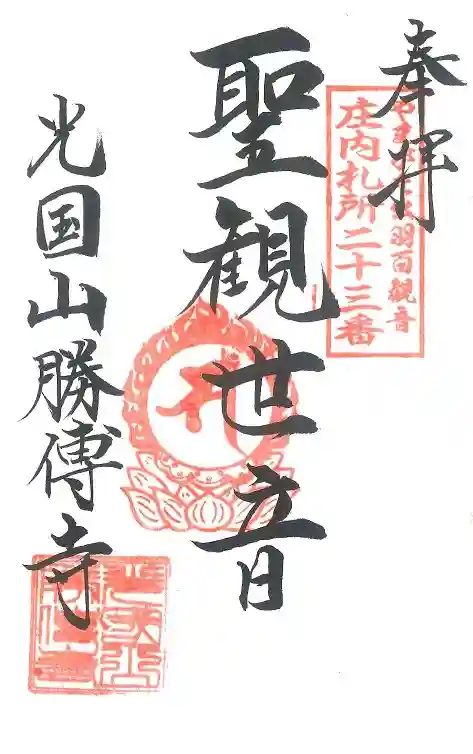 奉拝
やまがた出羽百観音
庄内札所二十三番
聖観世音
光国山勝傳寺